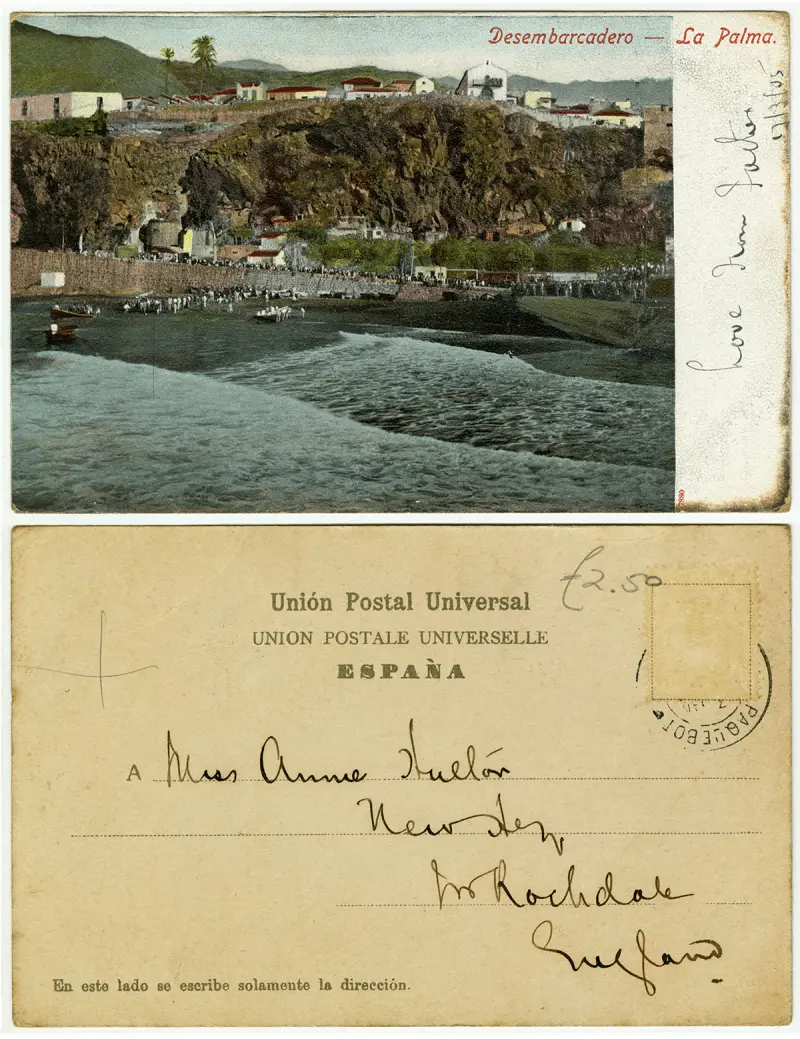 Desembarcadero — La Palma.
Love from Father
£2.50
Unión Postal Universal
UNION POSTALE UNIVERSELLE
ESPAÑA
PAQUEBOT
A Miss Annie
New Hey
Nr Rochdale
England
En este lado se escribe solamente la dirección.